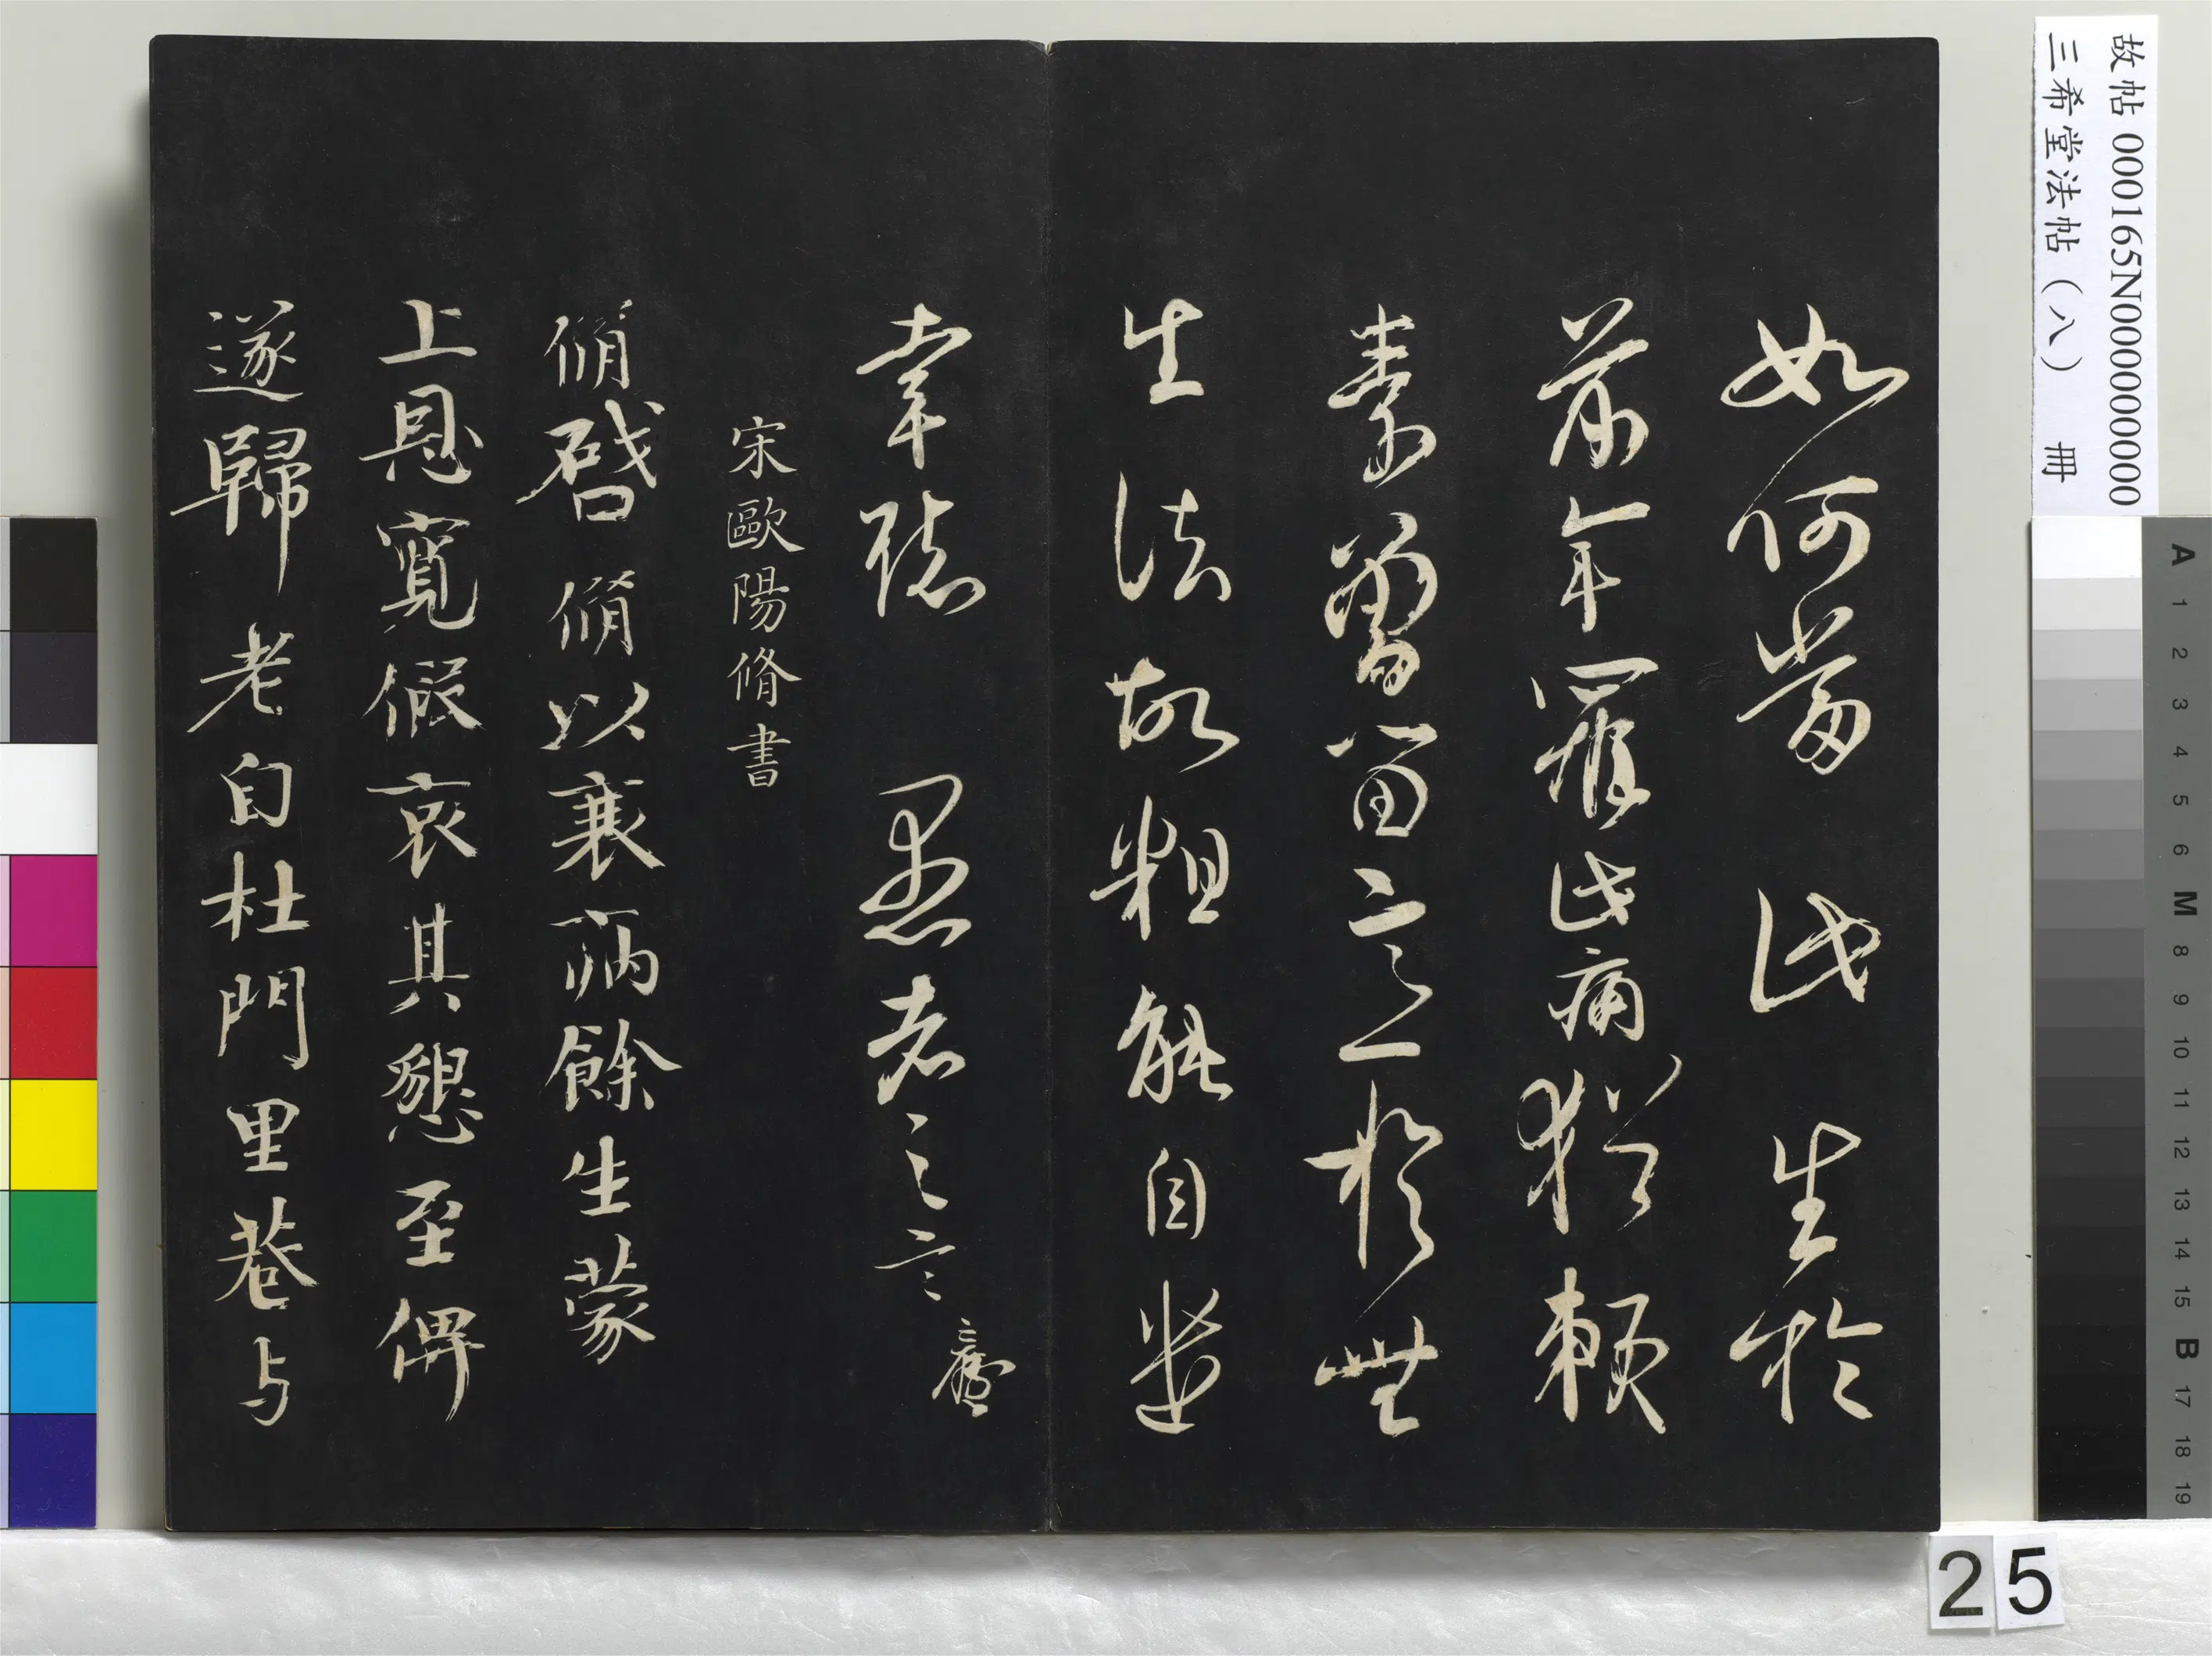 故帖 000165N000000000
三希堂法帖（八） 冊
如何當此生於
前年罹此痛猶賴
素曾留意於無
生法故粗能自遣
幸聽愚者之言
宋歐陽脩書
脩啓脩以衰病餘生蒙
上恩寬假哀其懇至俾
遂歸老自杜門里巷与
A 1 2 3 4 5 6 M 8 9 10 11 12 13 14 15 B 17 18 19
25